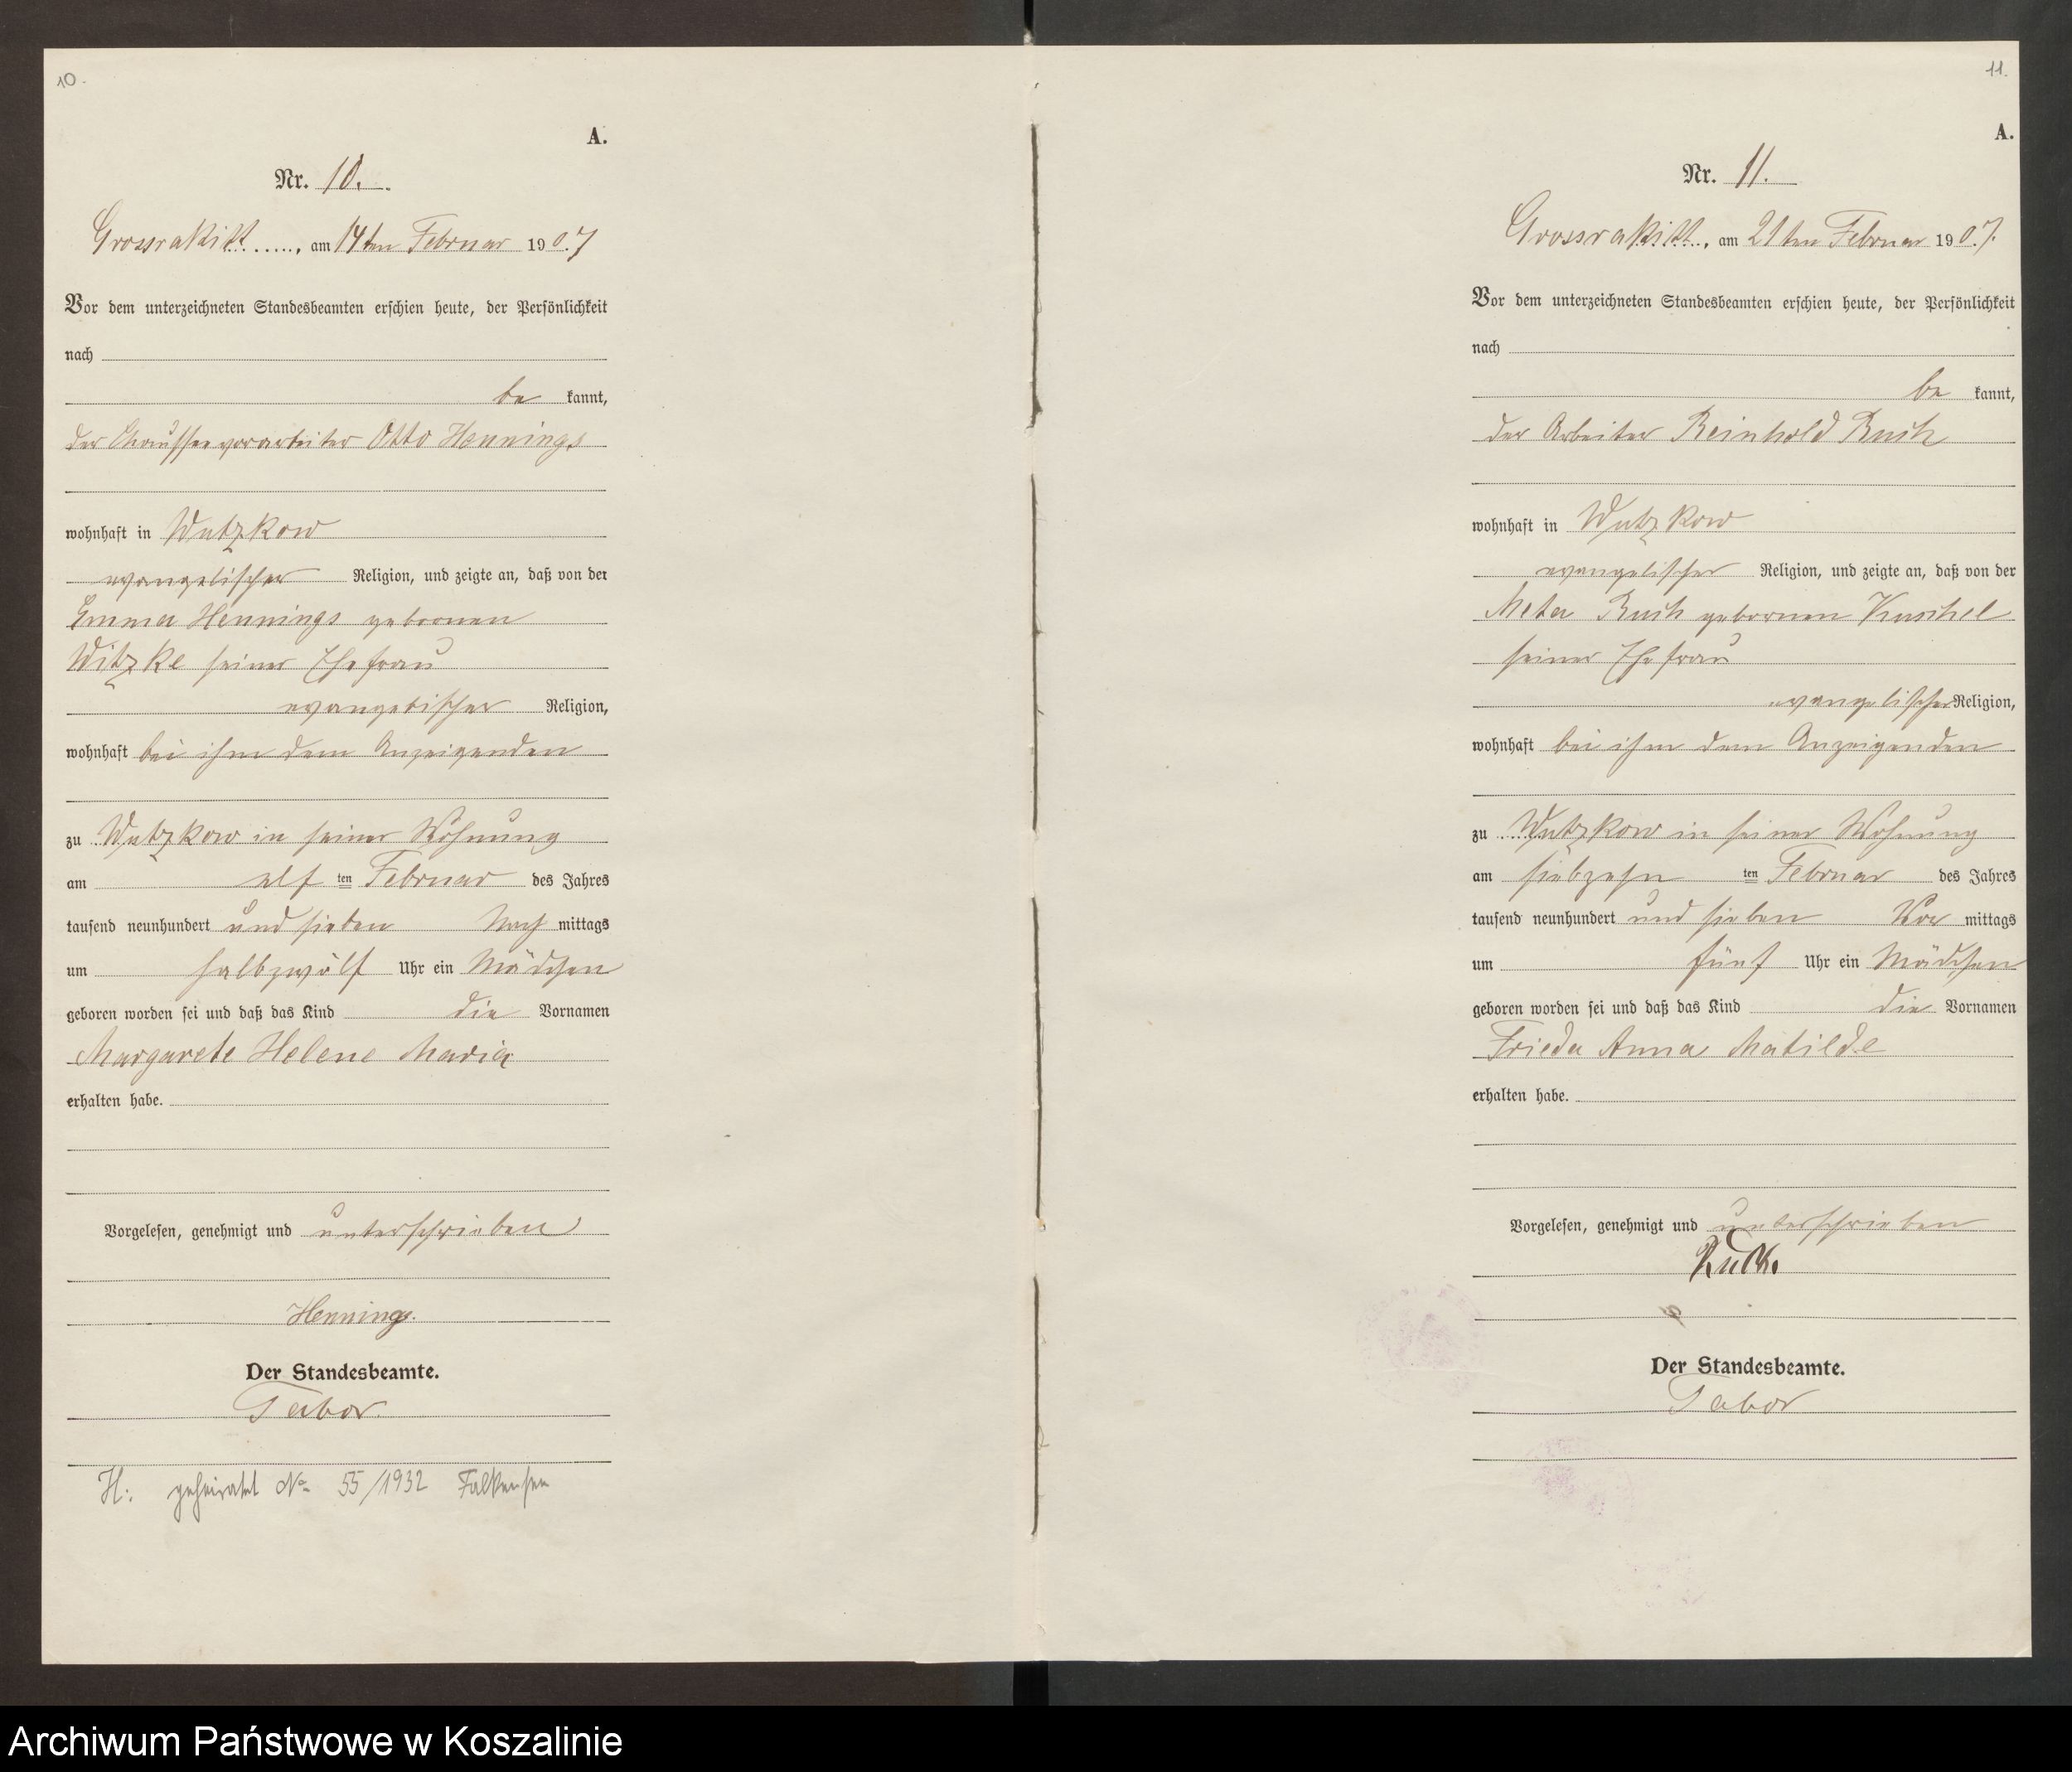 10.
A.
Nr. 10.
Grossrakitt, am 14ten Februar 1907
Vor dem unterzeichneten Standesbeamten erschien heute, der Persönlichkeit
nach
be kannt,
der Chausseevorarbeiter Otto Hennings
wohnhaft in Wutzkow
evangelischer Religion, und zeigte an, daß von der
Emma Hennings gebornen
Witzke seiner Ehefrau
evangelischer Religion,
wohnhaft bei ihm dem Anzeigenden
zu Wutzkow in seiner Wohnung
am elf ten Februar des Jahres
tausend neunhundert und sieben Nach mittags
um halbzwölf Uhr ein Mädchen
geboren worden sei und daß das Kind die Vornamen
Margarete Helene Maria
erhalten habe.
Vorgelesen, genehmigt und unterschrieben
Hennings.
Der Standesbeamte.
Tabor.
H: geheiratet No 55/1932 Falkensee
11.
A.
Nr. 11.
Grossrakitt, am 21ten Februar 1907.
Vor dem unterzeichneten Standesbeamten erschien heute, der Persönlichkeit
nach
be kannt,
der Arbeiter Reinhold Ruch
wohnhaft in Wutzkow
evangelischer Religion, und zeigte an, daß von der
Meta Ruch gebornen Kuschel
seiner Ehefrau
evangelischer Religion,
wohnhaft bei ihm dem Anzeigenden
zu Wutzkow in seiner Wohnung
am siebzehn ten Februar des Jahres
tausend neunhundert und sieben Vor mittags
um fünf Uhr ein Mädchen
geboren worden sei und daß das Kind die Vornamen
Frieda Anna Matilde
erhalten habe.
Vorgelesen, genehmigt und unterschrieben
Ruch.
Der Standesbeamte.
Tabor
Archiwum Państwowe w Koszalinie